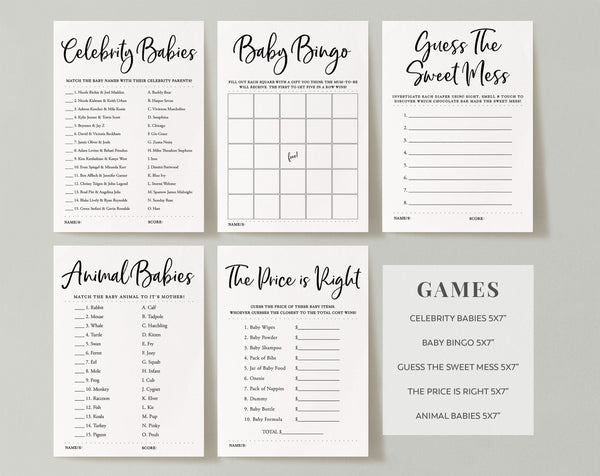 Celebrity Babies
MATCH THE BABY NAMES WITH THEIR CELEBRITY PARENTS!
1. Nicole Richie & Joel Madden
A. Buddy Bear
2. Nicole Kidman & Keith Urban
B. Harper Seven
3. Ashton Kutcher & Mila Kunis
C. Vivienne Marcheline
4. Kylie Jenner & Travis Scott
D. Seraphina
5. Beyonce & Jay Z
E. Chicago
6. David & Victoria Beckham
F. Gio Grace
7. Jamie Oliver & Jools
G. Zuma Nesta
8. Adam Levine & Behati Prinsloo
H. Miles Theodore Stephens
9. Kim Kardashian & Kanye West
I. Inez
10. Evan Spiegel & Miranda Kerr
J. Dimitri Portwood
11. Ben Affleck & Jennifer Garner
K. Blue Ivy
12. Chrissy Teigen & John Legend
L. Stormi Webster
13. Brad Pitt & Angelina Jolie
M. Sparrow James Midnight
14. Blake Lively & Ryan Reynolds
N. Sunday Rose
15. Gwen Stefani & Gavin Rossdale
O. Hart
NAME/S:
SCORE:
Baby Bingo
FILL OUT EACH SQUARE WITH A GIFT YOU THINK THE MUM-TO-BE
WILL RECEIVE. THE FIRST TO GET FIVE IN A ROW WINS!
free!
NAME/S:
Guess The
Sweet Mess
INVESTIGATE EACH DIAPER USING SIGHT, SMELL & TOUCH TO
DISCOVER WHICH CHOCOLATE BAR MADE THE SWEET MESS!
1.
2.
3.
4.
5.
6.
7.
8.
NAME/S:
SCORE:
Animal Babies
MATCH THE BABY ANIMAL TO IT'S MOTHER!
1. Rabbit
A. Calf
2. Mouse
B. Tadpole
3. Whale
C. Hatchling
4. Turtle
D. Kitten
5. Swan
E. Fry
6. Ferret
F. Joey
7. Eel
G. Squab
8. Mole
H. Infant
9. Frog
I. Cub
10. Monkey
J. Cygnet
11. Raccoon
K. Elver
12. Fish
L. Kit
13. Koala
M. Pup
14. Turkey
N. Pinky
15. Pigeon
O. Poult
NAME/S:
The Price is Right
GUESS THE PRICE OF THESE BABY ITEMS.
WHOEVER GUESSES THE CLOSEST TO THE TOTAL COST WINS!
1. Baby Wipes $
2. Baby Powder $
3. Baby Shampoo $
4. Pack of Bibs $
5. Jar of Baby Food $
6. Onesie $
7. Pack of Nappies $
8. Dummy $
9. Baby Bottle $
10. Baby Formula $
TOTAL $
NAME/S:
GAMES
CELEBRITY BABIES 5X7"
BABY BINGO 5X7"
GUESS THE SWEET MESS 5X7"
THE PRICE IS RIGHT 5X7"
ANIMAL BABIES 5X7"